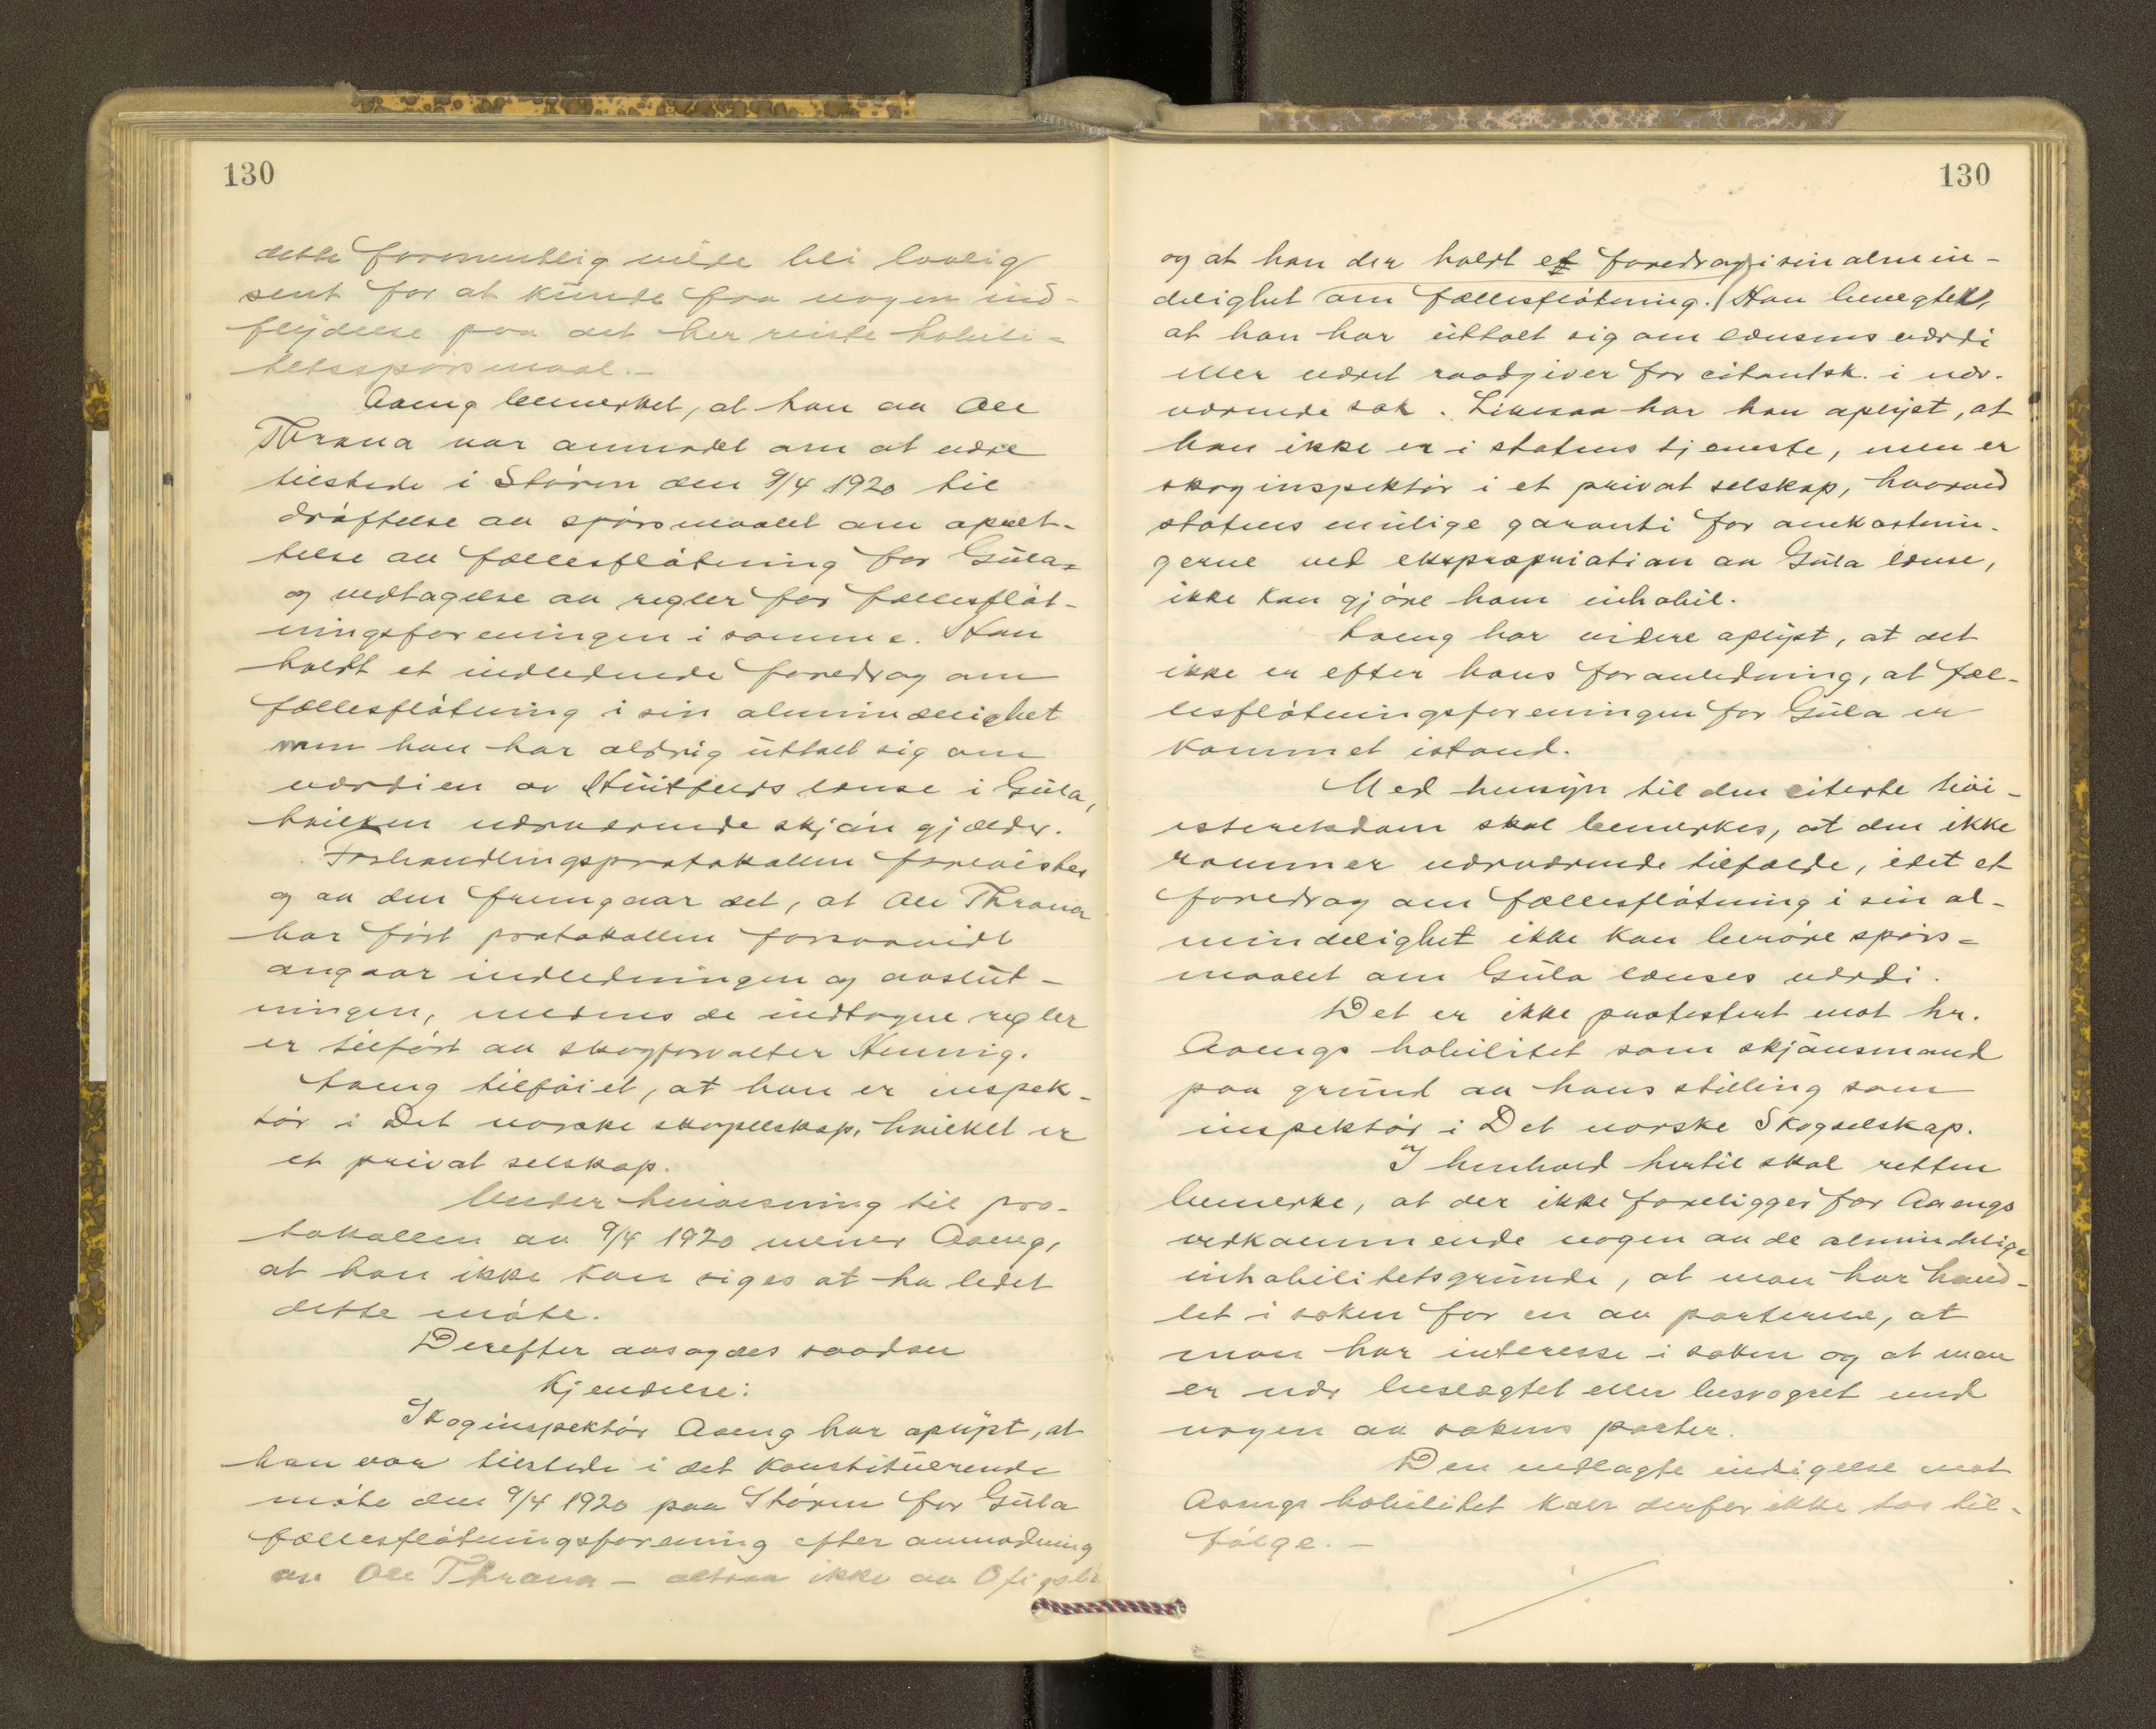 130
dette formentlig vilde bli lovlig
sent for at kunde faa nogen ind-
flydelse paa det her reiste habili-
tetsspørsmaal.-
Aaeng bemerket, at han av Ole
Thrana var anmodet om at være
tilstede i Støren den 9/4 1920 til
drøftelse av spørsmaalet om opret-
telse av fællesfløtning for Gula-
og vedtagelse av regler for fællesfløt-
ningsforeningen i samme. Han
holdt et indledende foredrag om
fællesfløtning i sin almindelighet
men han har aldrig uttalt sig om
værdien av Huitfeldts lense i Gula,
hvilken nærværende skjøn gjælder.
Forhandlingsprotokollen forevistes
og av den fremgaar det, at Ole Thrana
har ført protokollen forsaavidt
angaar indledningen og avslut-
ningen, medens de indtagne regler
er tilført av skogforvalter Hennig.
Aaeng tilføiet, at han er inspek-
tør i Det norske skogselskap, hvilket er
et privat selskap.
Under henvisning til pro-
tokollen av 9/4 1920 mener Aaeng,
at han ikke kan siges at ha ledet
dette møte.
Derefter avsagdes saadan
Kjendelse:
Skoginspektør Aaeng har oplyst, at
han var tilstede i det konstituerende
møte den 9/4 1920 paa Støren for Gula
fællesfløtningsforening efter anmodning
av Ole Thrana - altsaa ikke av
130
og at han der holdt et foredrag i sin almin-
delighet om fællesfløtning. Han benegter,
at han har uttalt sig om lensens værdi
eller været raadgiver for citantsk. i nær-
værende sak. Likesaa har han oplyst, at
han ikke er i statens tjeneste, men er
skoginspektør i et privat selskap, hvorved
statens mulige garanti for omkostnin-
gerne ved ekspropriation av Gula lense,
ikke kan gjøre ham inhabil.
Aaeng har videre oplyst, at det
ikke er efter hans foranledning, at fæl-
lesfløtningsforeningen for Gula er
kommet istand.
Med hensyn til den citerte høi-
esteretsdom skal bemerkes, at den ikke
rammer nærværende tilfælde, idet et
foredrag om fællesfløtning i sin al-
mindelighet ikke kan berøre spørs-
maalet om Gula lenses værdi.
Det er ikke protestert mot hr.
Aaengs habilitet som skjønsmand
paa grund av hans stilling som
inspektør i Det norske Skogselskap.
I henhold hertil skal retten
bemerke, at der ikke foreligger for Aaengs
vedkommende nogen av de almindelige
inhabilitetsgrunde, at man har hand-
let i saken for en av parterne, at
man har interesse i saken og at man
er nær beslægtet eller besvogret med
nogen av sakens parter.
Den nedlagte indsigelse mot
Aaengs habilitet kan derfor ikke tas til-
følge.-